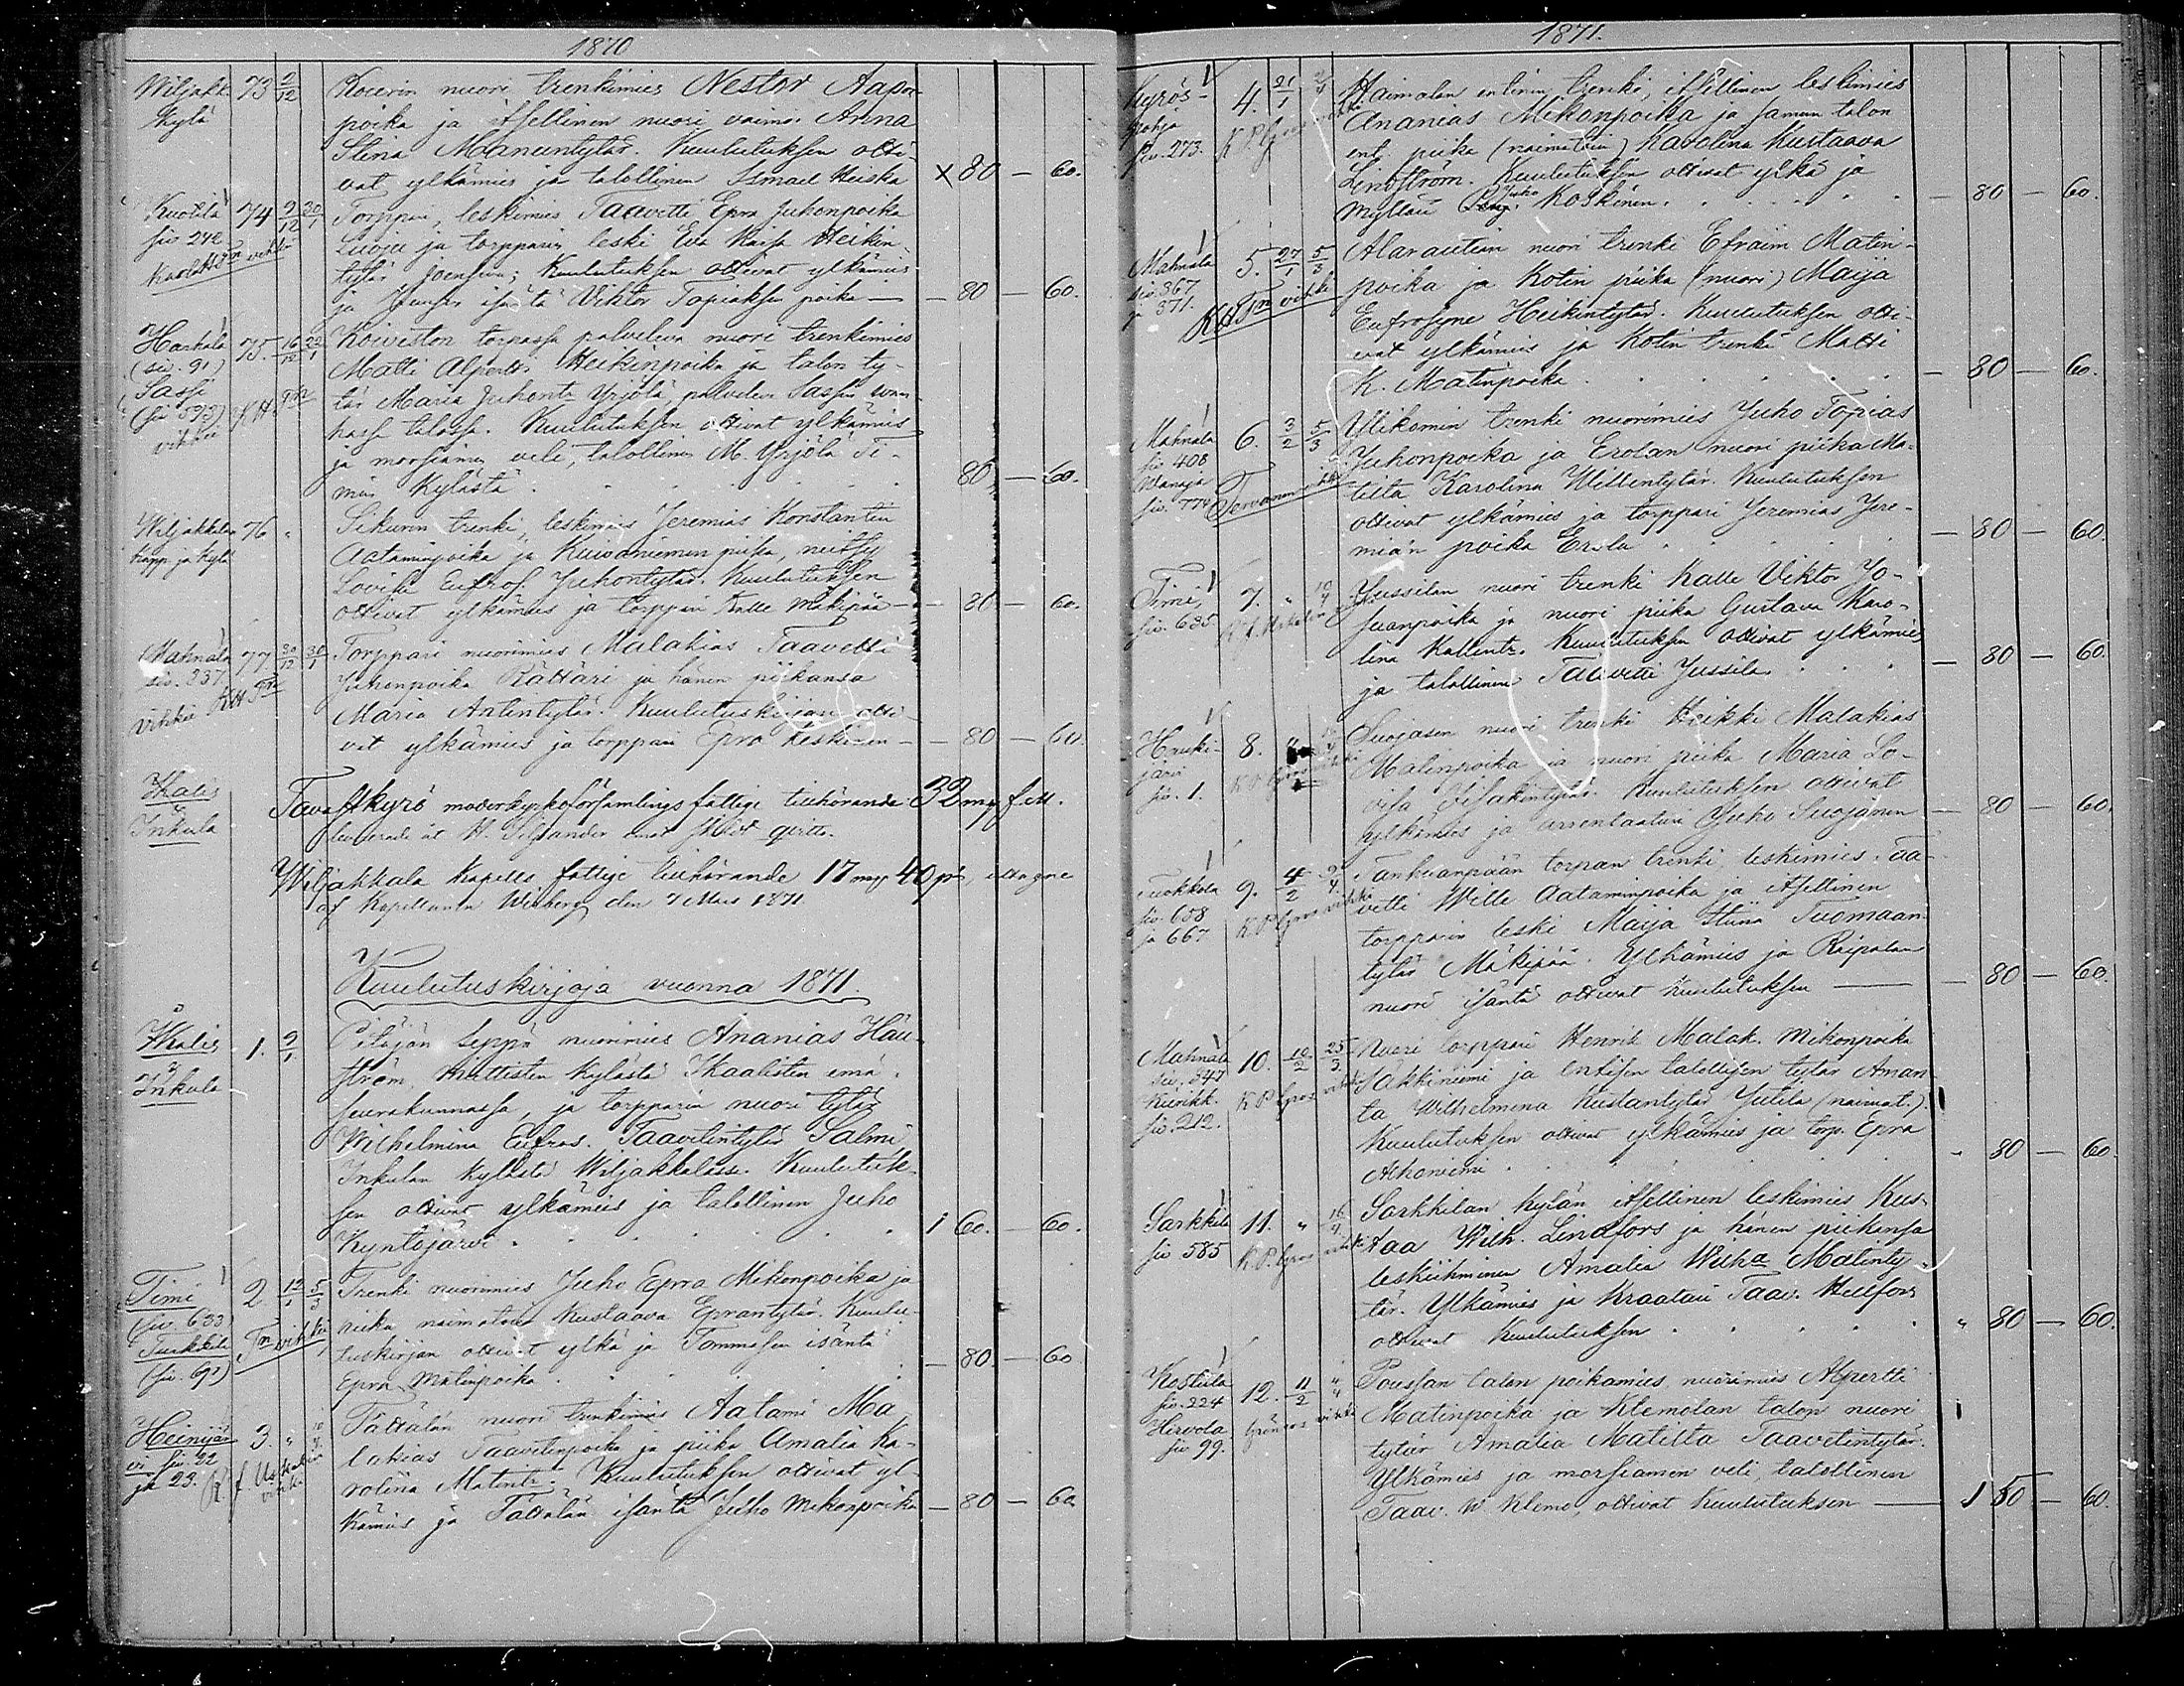 1870
Wiljakk. 73 2/12 Kocerin nuori trenkimies Nestor Aapon
Kylä poika ja itsellinen nuori vaimo Anna
Stina Manuntytär. Kuulutuksen otti-
vat ylkämies ja talollinen Ismael Heiska X 80 — 60.
Kuotila 74 9/12 30/1 Torppari, leskimies Taavetti Epra Juhonpoika
siv 242 ja torpparin leski Eva Kaisa Heikin-
tytär Joensuu; Kuulutuksen ottivat ylkämies
ja isäntä Viktor Topiaksen poika — 80 — 60.
Harhala 75. 16/12 22/1 Koiviston torpassa palveleva nuori trenkimies
(siv. 91) Matti Alpertti Heikinpoika ja talon ty-
Sassi tär Maria Juhont: Yrjölä, palvelee Sassin
(siv 593) KH Tm hassa talossa. Kuulutuksen ottivat ylkämies
vihkii ja morsiamen veli, talollinen M. Yrjölä Ti-
min Kylästä 80 — 60.
Wiljakkalan 76 " Sikurin trenki, leskimies Jeremias Konstantin
Kapp. ja Kylä Aataminpoika ja Kuivaniemen piika, neitsy
Lovisa Eufros. Juhontytär. Kuulutuksen
ottivat ylkämies ja torppari Kalle Mäkipää — 80 — 60.
Mahnala 77 30/12 30/1 Torppari nuorimies Malakias Taavetti
siv. 337 Juhonpoika Rättäri ja hänen piikansa
vihkii KH Tm Maria Antintytär. Kuulutuskirjan otti-
vat ylkämies ja torppari Epra Keskinen — 80 — 60.
Ikalis
&
Inkula
Tavastkyrö moderkyrkoförsamlings fattige tillhörande 32 my f.
levererade åt H. Silfsander emot skildt qvitto.
Wiljakkala Kapells fattige tillhörande 17 my 40 pi,
af Kapellanen Winberg den 7 Mars 1871
Kuulutuskirjoja vuonna 1871.
Ikalis 1. 9/1 Pitäjän seppä nuorimies Ananias Häll-
& ström, Kylästä Ikaalisten emä-
Inkula seurakunnassa, ja torpparin nuori tytär
Wilhelmina Eufros. Taavetintytär Salmi
Inkulan Kylästä Wiljakkalassa. Kuulutuk-
sen ottivat ylkämies ja talollinen Juho
Kyntöjärvi 1 60. — 60.
Timi 2 12/1 5/3 Trenki nuorimies Juho Epra Mikonpoika ja
(siv. 633) piika naimatoin Kustaava Eprantytär. Kuulu-
Turkkila Tm vihkii tuskirjan ottivat ylkä ja Tommosen isäntä
(siv. 691) Epra Matinpoika — 80. — 60
Heinijär- 3. " Tättälän nuori trenkimies Aatami Ma-
vi siv. 22 lakias Taavetinpoika ja piika Amalia Ka-
ja 23. roliina Matint: Kuulutuksen ottivat yl-
kämies ja Tättälän isäntä Juho Mikonpoika — 80 — 60
1871.
Kyrös- 4. 21/1 Haimolan entinen trenki, itsellinen leskimies
pohja Ananias Mikonpoika ja saman talon
siv. 273. ent. piika (naimatoin) Karolina Kustaava
Lindström. Kuulutuksen ottivat ylkä ja
Myllari Juho Koskinen. — 80 — 60.
Mahnala 5. 27/1 5/3 Alarautian nuori trenki Efraim Matin-
siv. 367 poika ja Kotin piika (nuori) Maija
ja 371. KH Tm vihkii Eufrosyne Heikintytär. Kuulutuksen otti-
vat ylkämies ja Kotin trenki Matti
K. Matinpoika — 80 — 60.
Mahnala 6. 3/2 5/3 Ylikomin trenki nuorimies Juho Topias
siv. 408 Juhonpoika ja Erolan nuori piika Ma-
tilta Karolina Willentytär. Kuulutuksen
siv. 774 Tervonen ottivat ylkämies ja torppari Jeremias Jere-
miän poika Erola — 80 — 60.
Timi, 7. " Jussilan nuori trenki Kalle Viktor Jo-
siv. 635 suanpoika ja nuori piika Gustava Karo-
lina Kallent: Kuulutuksen ottivat ylkämies
ja talollinen Taavetti Jussila — 80 — 60.
Hauki- 8. " Suojasen nuori trenki Heikki Malakias
järvi Matinpoika ja nuori piika Maria Lo-
siv. 1. visa Iisakintytär. Kuulutuksen ottivat
ylkämies ja arrentaatori Juho Suojanen — 80 — 60.
Tuokkola 9. 4/2 Tankuanpään torpan trenki leskimies Taa-
siv. 658 vetti Wille Aataminpoika ja itsellinen
ja 667 torpparin leski Maija Stiina Tuomaan-
tytär Mäkipää. Ylkämies ja Raipalan
nuori isäntä ottivat kuulutuksen — 80 — 60.
Mahnala 10. 10/2 25/3 Nuori torppari Henrik Malak. Mikonpoika
siv. 347 Jakkiniemi ja entisen talollisen tytär Aman-
Kierikk. ta Wilhelmina Kustantytär Jutila (naimat.).
siv. 212. Kuulutuksen ottivat ylkämies ja torp. Epra
Ahoniemi 80 — 60.
Sarkkila 11. " Sarkkilan kylän itsellinen leskimies Kus-
siv 585 taa Wilh. Lindfors ja hänen piikansa
leski-ihminen Amalia Wilha Matinty-
tär. Ylkämies ja Kraatari Taav. Hellfors
ottivat Kuulutuksen " 80 — 60.
Kostula 12. 11/2 Poussan talon poikamies nuorimies Alpertti
siv. 224 Matinpoika ja Klemolan talon nuori
Hirvola tytär Amalia Matilta Taavetintytär.
siv 99. Ylkämies ja morsiamen veli, talollinen
Taav. W. Klemo, ottivat Kuulutuksen — 1 50 — 60.